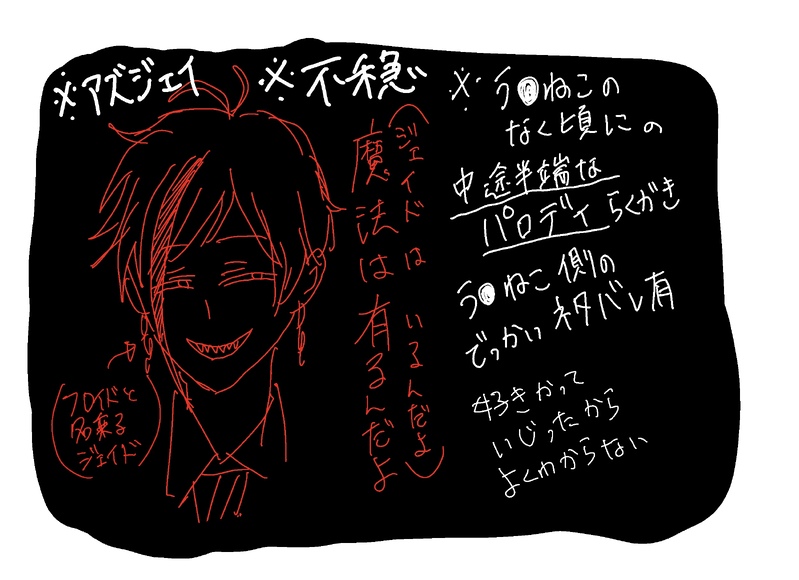 ※アズジェイ
※不穏
※う●ねこの
なく頃にの
中途半端な
パロディらくがき
う●ねこ側の
でっかいネタバレ有
好きかって
いじったから
よくわからない
(ジェイドは いるんだよ)
魔法は有るんだよ
(フロイドと
名乗る
ジェイド)